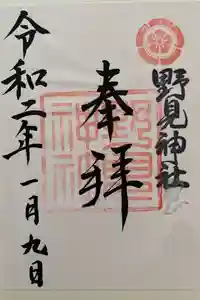 野見神社
奉拝
令和二年一月九日